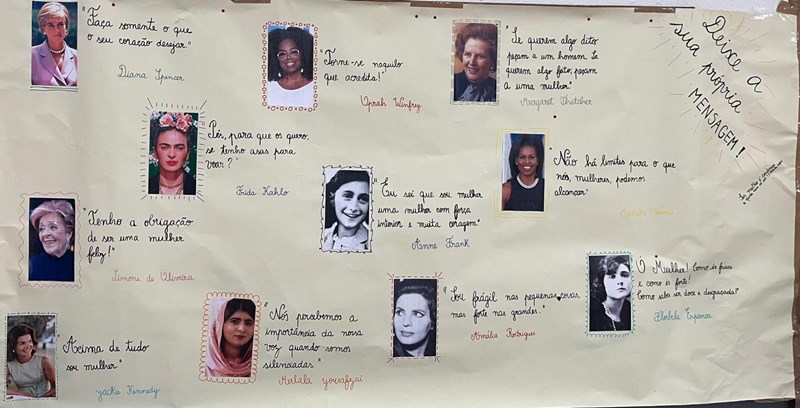 "Faça somente o que
o seu coração desejar."
Diana Spencer
"Torne-se naquilo
que acredita!"
Oprah Winfrey
"Se querem algo dito
peçam a um homem. Se
querem algo feito, peçam
a uma mulher."
Margaret Thatcher
Deixe a
sua própria
MENSAGEM!
"Pés, para que os quero,
se tenho asas para
voar?"
Frida Kahlo
"Eu sei que sou mulher
uma mulher com força
interior e muita coragem"
Anne Frank
"Não há limites para o que
nós, mulheres, podemos
alcançar"
"Tenho a obrigação
de ser uma mulher
feliz!"
Simone de Oliveira
"Acima de tudo
sou mulher"
Jackie Kennedy
"Nós percebemos a
importância da nossa
voz quando somos
silenciadas"
Malala yousafzai
"Sou frágil nas pequenas coisas,
mas forte nas grandes."
Amália Rodrigues
"Ó Mulher! Como és fraca
e como és forte!
Como sabes ser doce e desgraçada!"
Florbela Espanca